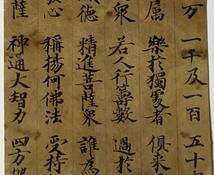 万 一千及一百 五十
属 樂於獨處者 俱來
眾 若人行籌數 過於
德 精進菩薩眾 誰為
心 稱揚何佛法 受持
薩 神通大智力 四方